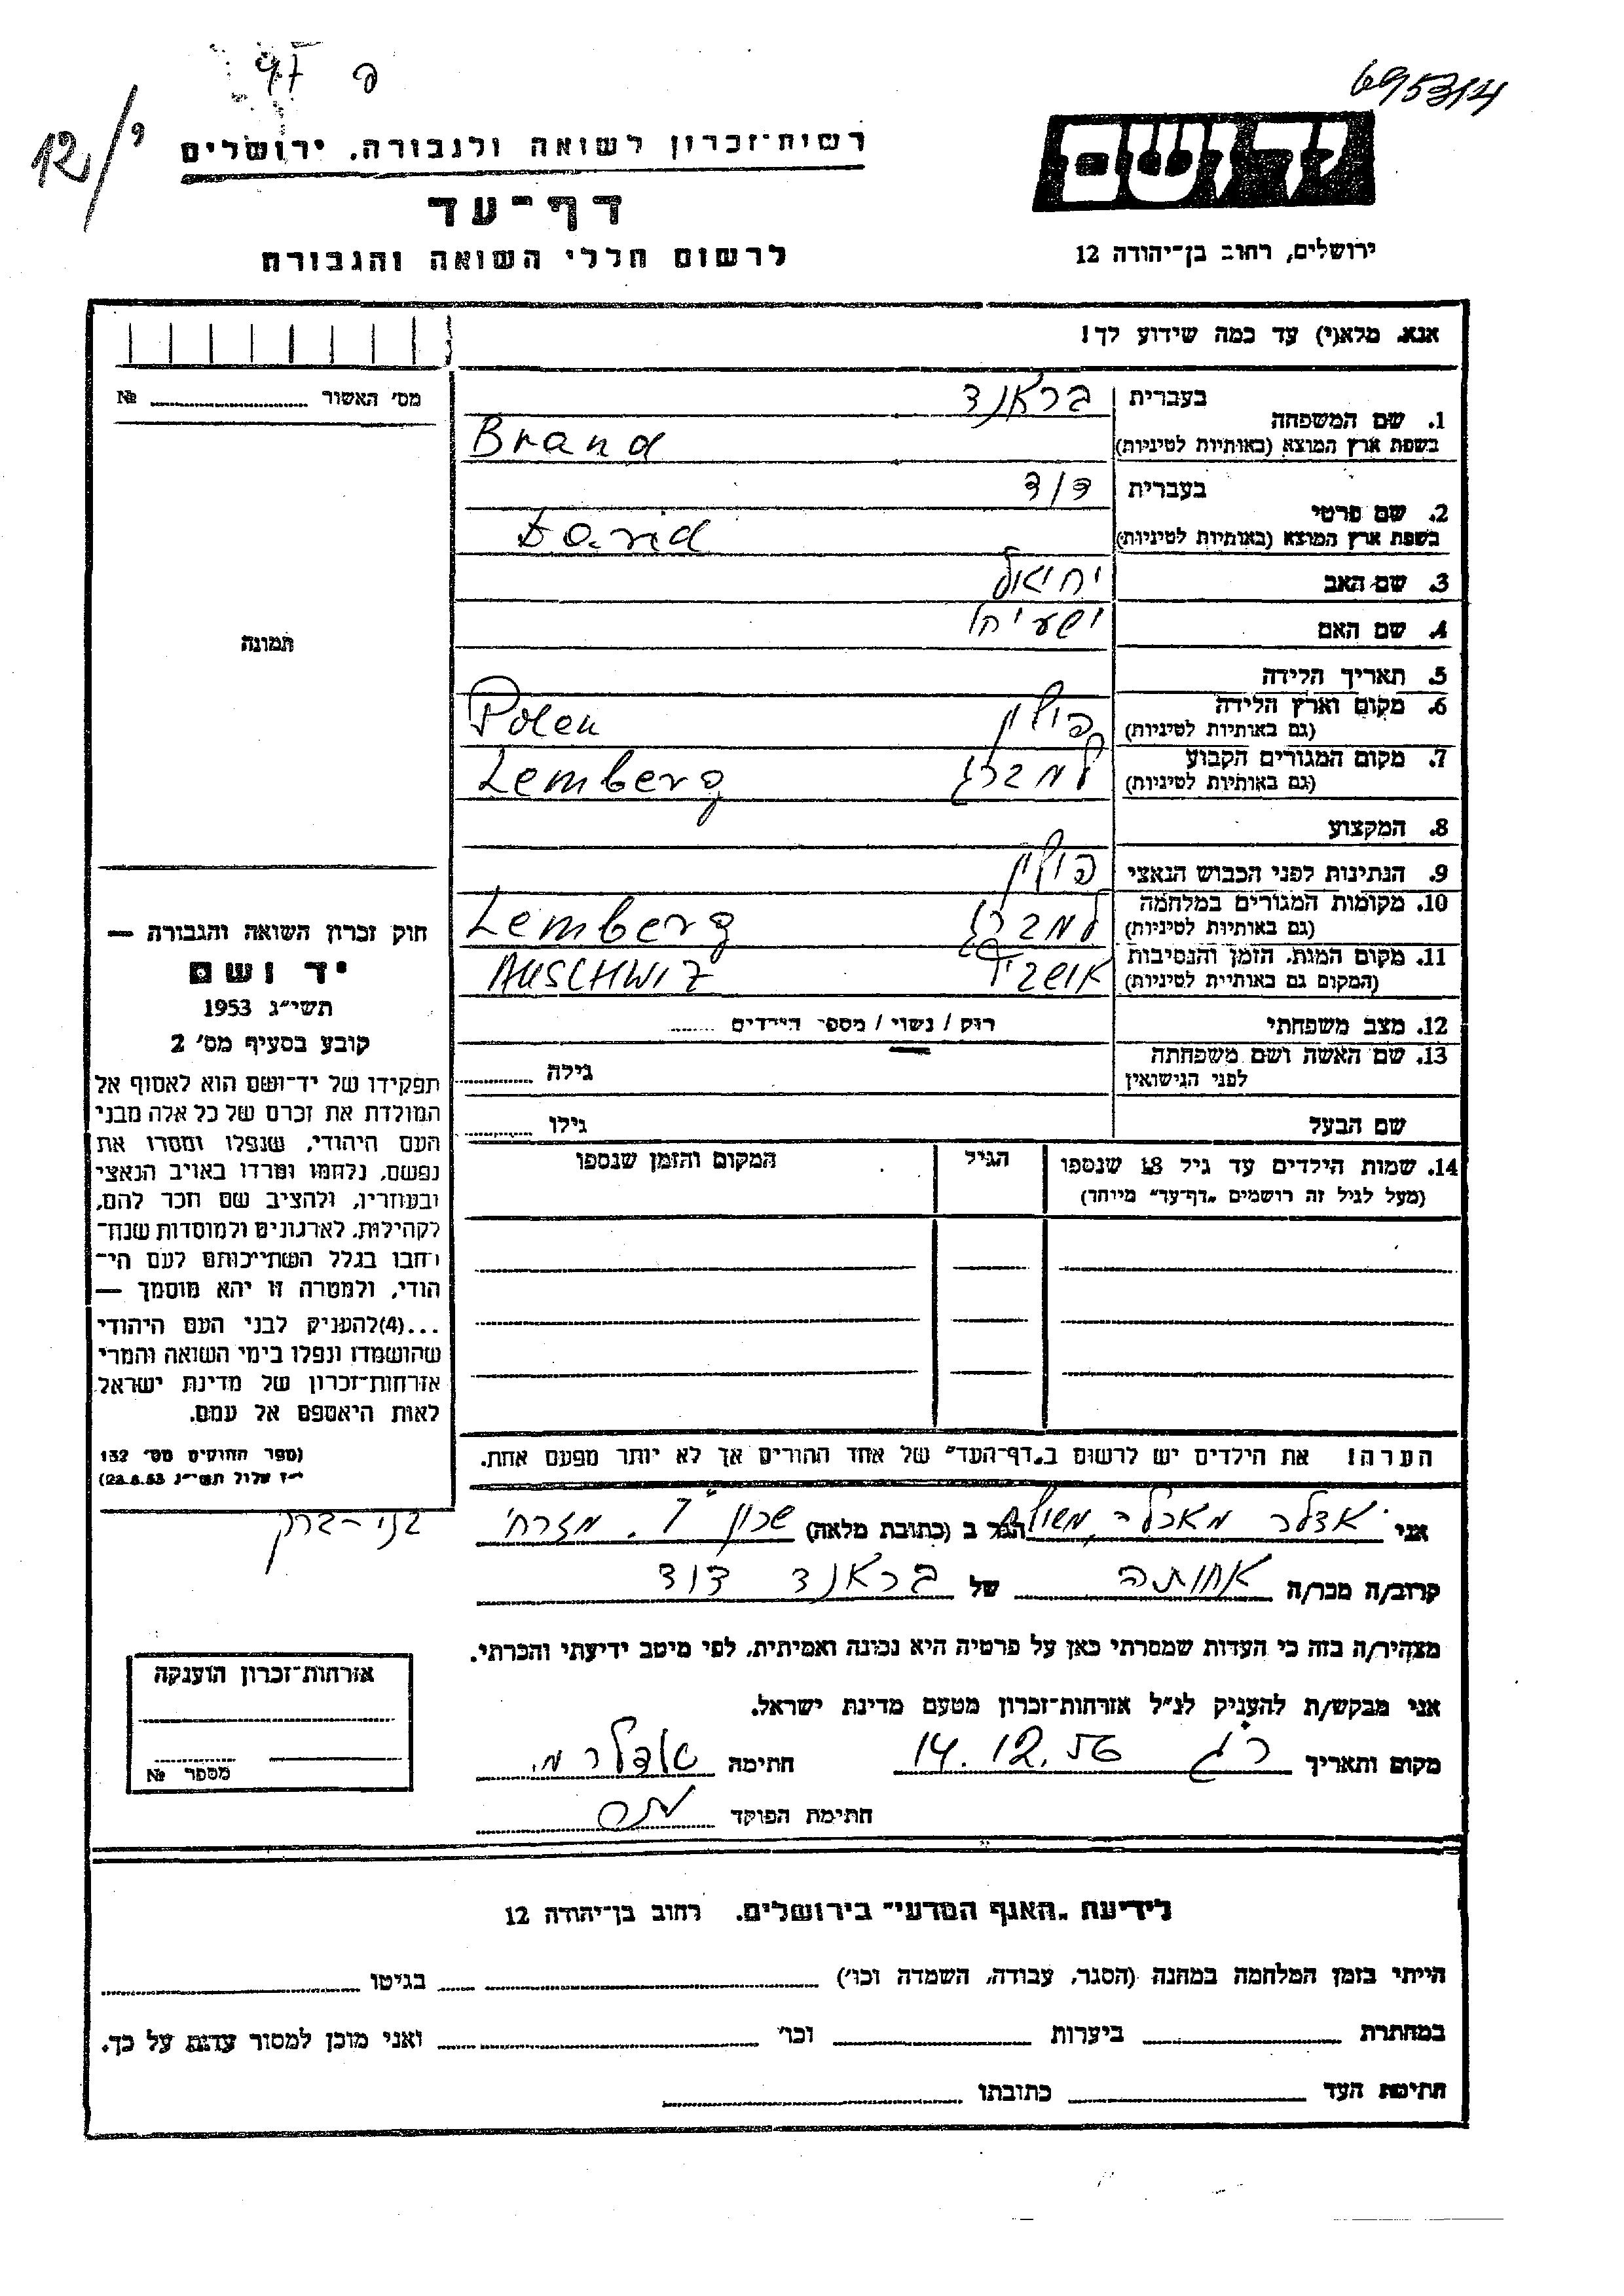 695314
97 פ
12/י
יד ושם
רשות־זכרון לשואה ולגבורה, ירושלים
דף־עד
לרשום חללי השואה והגבורה
ירושלים, רחוב בן־יהודה 12
אנא, מלא(י) עד כמה שידוע לך!
מס׳ האשור № 
1. שם המשפחה
בעברית בראנד
בשפת ארץ המוצא (באותיות לטיניות) Brand
2. שם פרטי
בעברית דוד
בשפת ארץ המוצא (באותיות לטיניות) David
3. שם האב יחיאל
4. שם האם
5. תאריך הלידה
6. מקום וארץ הלידה פולין Polen
(גם באותיות לטיניות)
7. מקום המגורים הקבוע למברג Lemberg
(גם באותיות לטיניות)
8. המקצוע
9. הנתינות לפני הכבוש הנאצי פולין
10. מקומות המגורים במלחמה למברג Lemberg
(גם באותיות לטיניות)
11. מקום המות, הזמן והנסיבות AUSCHWIZ
(המקום גם באותיות לטיניות)
12. מצב משפחתי רוק / נשוי / מספר הילדים
13. שם האשה ושם משפחתה
לפני הנישואין גילה
שם הבעל גילו
14. שמות הילדים עד גיל 18 שנספו הגיל המקום והזמן שנספו
(מעל לגיל זה רושמים „דף־עד״ מיוחד)
הערה! את הילדים יש לרשום ב„דף־העד״ של אחד ההורים אך לא יותר מפעם אחת.
תמונה
חוק זכרון השואה והגבורה —
יד ושם
תשי״ג 1953
קובע בסעיף מס׳ 2
תפקידו של יד־ושם הוא לאסוף אל
המולדת את זכרם של כל אלה מבני
העם היהודי, שנפלו ומסרו את
נפשם, נלחמו ומרדו באויב הנאצי
ובעוזריו, ולהציב שם וזכר להם,
לקהילות, לארגונים ולמוסדות שנח־
רבו בגלל השתייכותם לעם הי־
הודי, ולמטרה זו יהא מוסמך —
...(4)להעניק לבני העם היהודי
שהושמדו ונפלו בימי השואה והמרי
אזרחות־זכרון של מדינת ישראל
לאות היאספם אל עמם.
(ספר החוקים מס׳ 132
י״ז אלול תשי״ג 28.8.53)
אני אדלר הגר ב (כתובת מלאה) שכון ו. מזרחי בני-ברק
קרוב/ה מכר/ה אחותה של בראנד דוד
מצהיר/ה בזה כי העדות שמסרתי כאן על פרטיה היא נכונה ואמיתית, לפי מיטב ידיעתי והכרתי.
אני מבקש/ת להעניק לנ״ל אזרחות־זכרון מטעם מדינת ישראל.
מקום ותאריך רג 14.12.56 חתימה אדלר מ.
חתימת הפוקד
אזרחות־זכרון הוענקה
מספר №
לידיעת „האגף המדעי״ בירושלים, רחוב בן־יהודה 12
הייתי בזמן המלחמה במחנה (הסגר, עבודה, השמדה וכו׳) בגיטו
במחתרת ביערות וכו׳ ואני מוכן למסור עדות על כך.
חתימת העד כתובתו